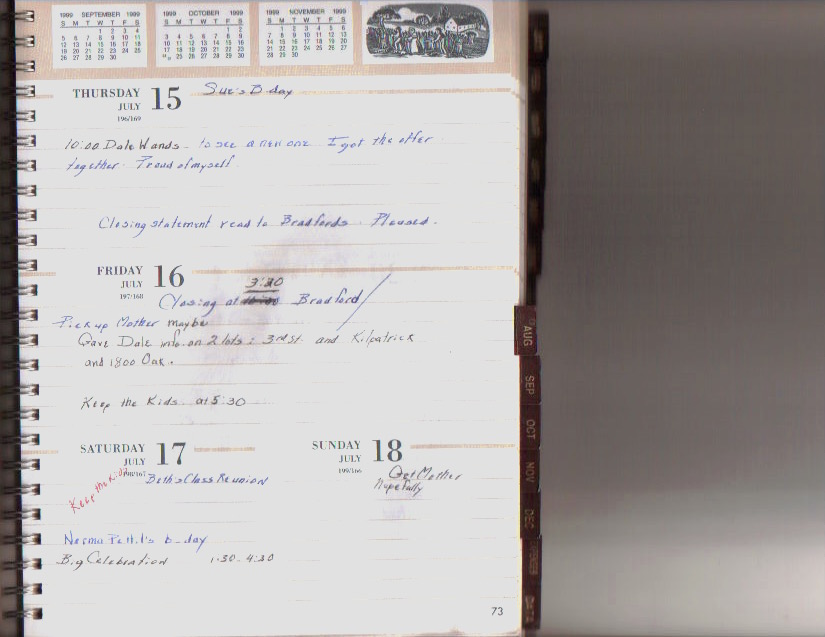 1999 SEPTEMBER 1999
S M T W T F S
1 2 3 4
5 6 7 8 9 10 11
12 13 14 15 16 17 18
19 20 21 22 23 24 25
26 27 28 29 30
1999 OCTOBER 1999
S M T W T F S
1 2
3 4 5 6 7 8 9
10 11 12 13 14 15 16
17 18 19 20 21 22 23
24/31 25 26 27 28 29 30
1999 NOVEMBER 1999
S M T W T F S
1 2 3 4 5 6
7 8 9 10 11 12 13
14 15 16 17 18 19 20
21 22 23 24 25 26 27
28 29 30
THURSDAY 15 Sue's B day
JULY
196/169
10:00 Dale Wands - to see a new one I got the offer
together. Proud of myself.
Closing statement read to Bradfords. Pleased.
FRIDAY 16
JULY
197/168
3:30
Closing at 10:00 Bradford
Pick up Mother maybe
Gave Dale info. on 2 lots: 3rd St. and Kilpatrick
and 1800 Oak.
Keep the Kids. at 5:30
SATURDAY 17
JULY
198/167
Keep the Kids
Beth's Class Reunion
Norma Pettit's b-day
Big Celebration 1:30-4:30
SUNDAY 18
JULY
199/166
Get Mother
hopefully
AUG
SEP
OCT
NOV
DEC
73